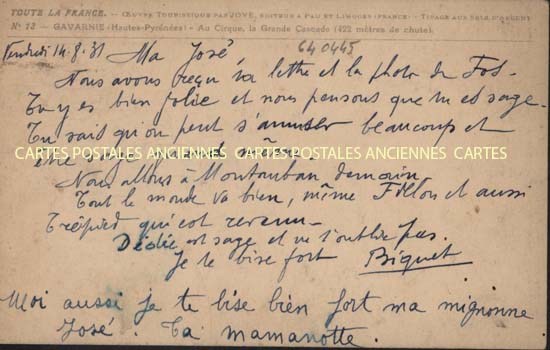 TOUTE LA FRANCE. — ŒUVRE TOURISTIQUE PAR JOVE, EDITEUR A PAU ET LIMOGES (FRANCE) - TIRAGE AUX SELS D'ARGENT
N° 12 - GAVARNIE (Hautes-Pyrénées) - Au Cirque, la Grande Cascade (422 mètres de chute).
640445
Vendredi 14.8.31 Ma José
Nous avons reçu ta lettre et la photo de Fos.
Tu y es bien jolie et nous pensons que tu es sage.
Tu sais qu'on peut s'amuser beaucoup et
être sage quand même.
CARTES POSTALES ANCIENNES CARTES POSTALES ANCIENNES CARTES
Nous allons à Montauban demain
Tout le monde va bien, même et aussi
qui est revenu
Dédée est sage et ne t'oublie pas.
Je te bise fort Biquet
Moi aussi je te bise bien fort ma mignonne
José. Ta mamanotte.